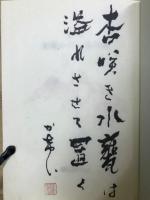 杏咲き水甕は
溢れさせて置く
かけい